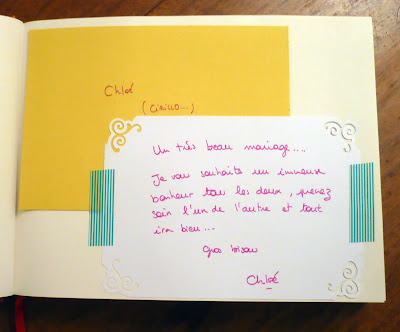 Chloé
(Cirico...)
Un très beau mariage....
Je vous souhaite un immense
bonheur tous les deux, prenez
soin l'un de l'autre et tout
ira bien...
Gros bisous
Chloé